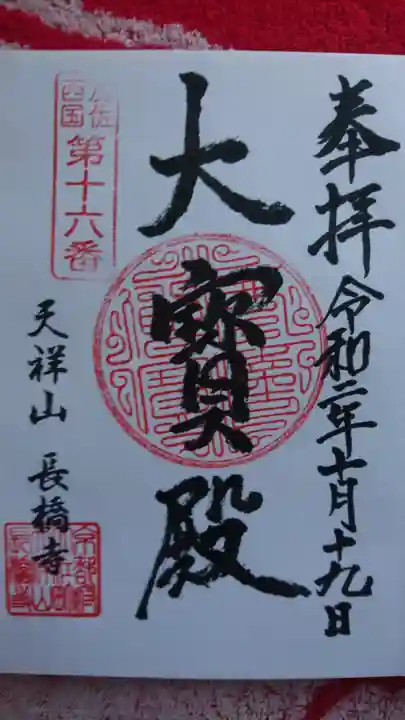 奉拝 令和二年十月十九日
大寳殿
第十六番
天祥山 長橋寺